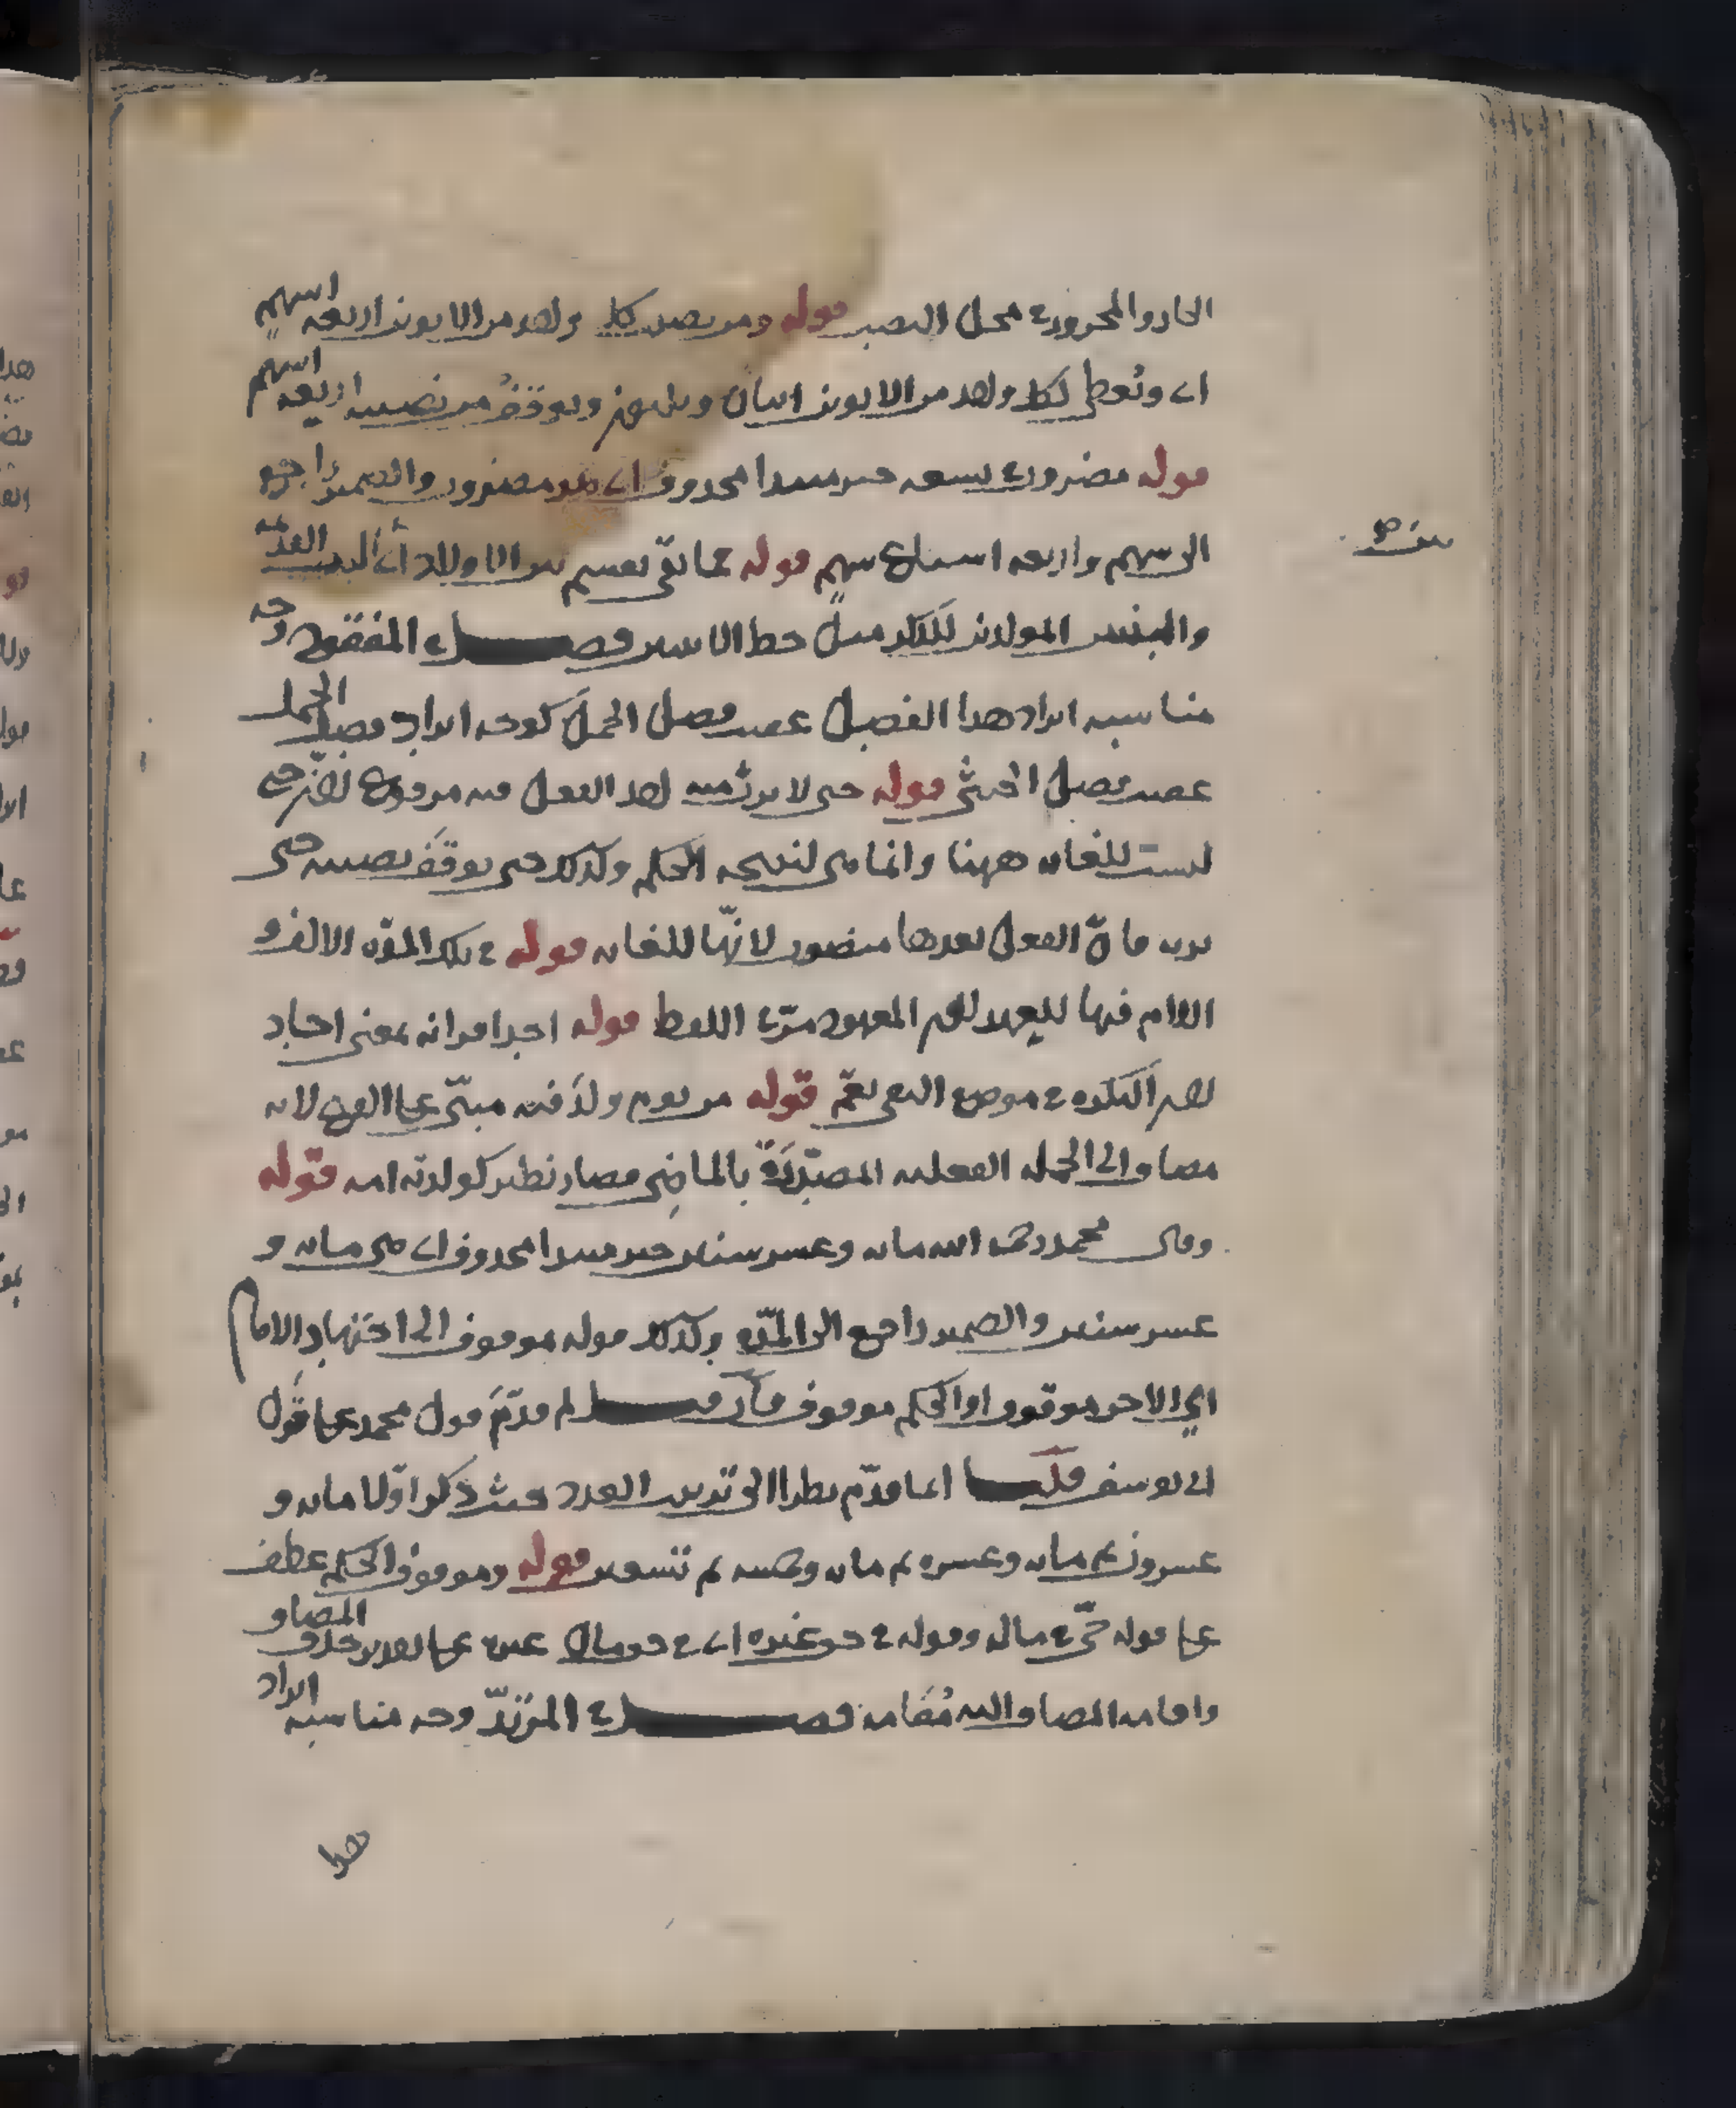 الجار والمجرور في محل النصب قوله ومن نصيب كل واحد من الابوين اربعة اسهم
اي ونعطي لكل واحد من الابوين اثنان وثلثون ويوقف من نصيبه اربعة اسهم
قوله مضروب في تسعة خبر مبتدا محذوف اي هو مضروب والضمير راجع
الى سهم واربعة اسباع سهم قوله مما بقي نقسم بين الاولاد اي البنت
والبنت المولودين للذكر مثل حظ الانثيين فصل في المفقود وجه
مناسبة ايراد هذا الفصل عقيب فصل الحمل كوجه ايراد فصل الحمل
عقيب فصل الخنثى قوله حتى لا يرث منه احد الفعل فيه مرفوع لان حتى
ليست للغاية ههنا وانما هي لنتيجة الحكم وكذلك حتى يوقف نصيبه حتى
فان الفعل بعدها منصوب لانها للغاية قوله في تلك المدة الالف و
اللام فيها للعهد لان المعهود مر في اللفظ قوله احد اقرانه بمعنى احاد
لان النكرة في موضع النفي تعم قوله من يوم ولد فيه مبني على الفتح لانه
مضاف الى الجملة الفعلية المصدرة بالماضي فصار نظير كولدته امه قوله
وقال محمد رحمه الله مائة وعشر سنين خبر مبتدا محذوف اي هي مائة و
عشر سنين والضمير راجع الى المدة وكذلك قوله موقوف الى اجتهاد الامام
اي الاخر موقوف او الحكم موقوف فان قيل لم قدم قول محمد على قول
ابي يوسف قلت انما قدم نظرا الى ترتيب العدد حيث ذكر اولا مائة و
عشرون ثم مائة وعشرة ثم مائة وخمسة ثم تسعين قوله وموقوف الحكم عطف
على قوله حي في ماله وقوله في حق غيره اي في حق مال غيره على تقدير حذف المضاف
واقامة المضاف اليه مقامه فصل في المرتد وجه مناسبة ايراد
هذا